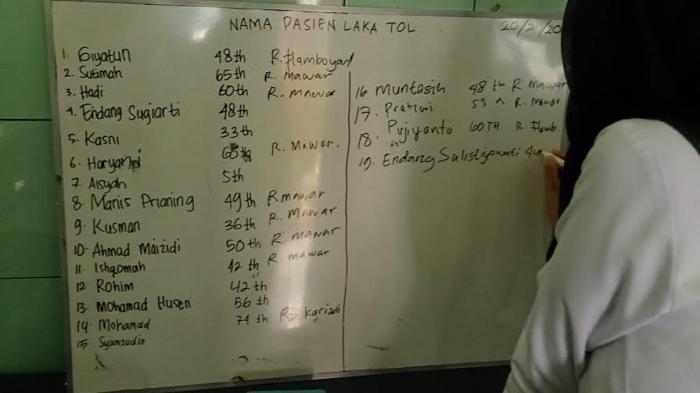 NAMA PASIEN LAKA TOL
20/2/20
1. Giyatun 48th R. Flamboyan
2. Sutimah 65th R. mawar
3. Hadi 60th R. mawar
4. Endang Sugiarti 48th
5. Kasni 33th
6. R. Mawar.
7. Aisyah 5th
8. Manis Prianing 49th R. mawar
9. Kusman 36th R. Mawar
10. Ahmad Maizidi 50th R mawar
11. Ishqomah 42th R mawar
12 Rohim 42th
13. Mohamad Husen 56th
14. Mohamad 74th
15. Syamsudin
16 Muntasih 48th R Mawar
17. Pratiwi 55 R. Mawar
18. Pujiyanto 60TH R. Flamb.
19. Endang Sulistiyowati